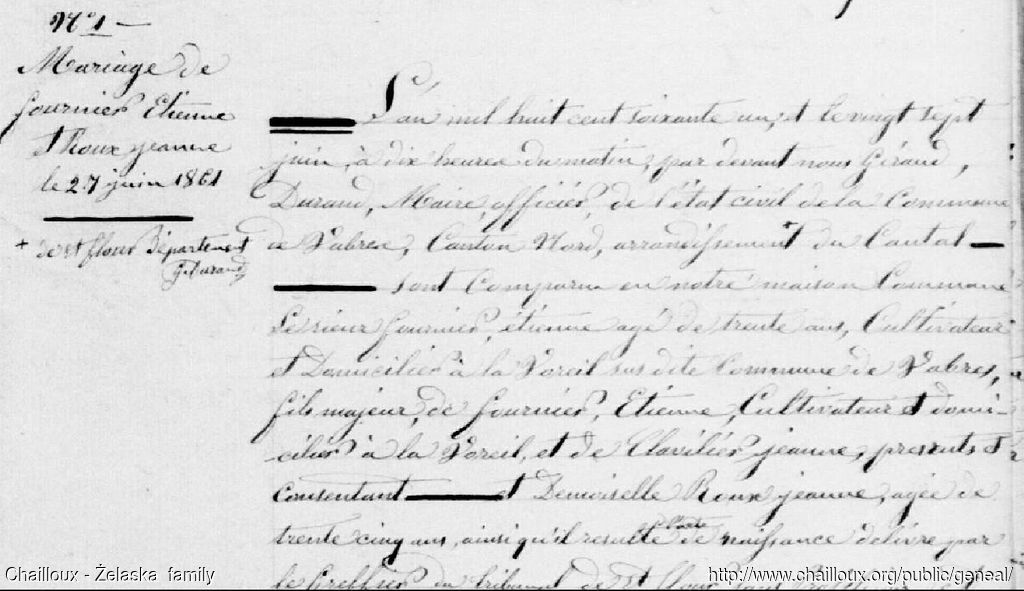 N° 1
Mariage de
fournier Etienne
et Roux jeanne
le 27 juin 1861
+ de St flour Département
G. Durand
L'an mil huit cent soixante un, et le vingt sept
juin, à dix heures du matin, par devant nous Gérand,
Durand, Maire, officier, de l'état civil de la Commune
de Vabres, Canton Nord, arrondissement + du Cantal
sont Comparu en notre maison Commune
Le sieur fournier, étienne agé de trente ans, Cultivateur
et Domicilier à la Voreil sus dite Commune de Vabres,
fils majeur, de fournier, Etienne, Cultivateur et domi-
cilier à la Voreil, et de Clavilier jeanne, presents et
Consentant et Demoiselle Roux jeanne, agée de
trente cinq ans, ainsi qu'il resulte de l'acte de naissance délivré par
le Greffier du tribunal de St flour
Chailloux - Żelaska family
http://www.chailloux.org/public/geneal/